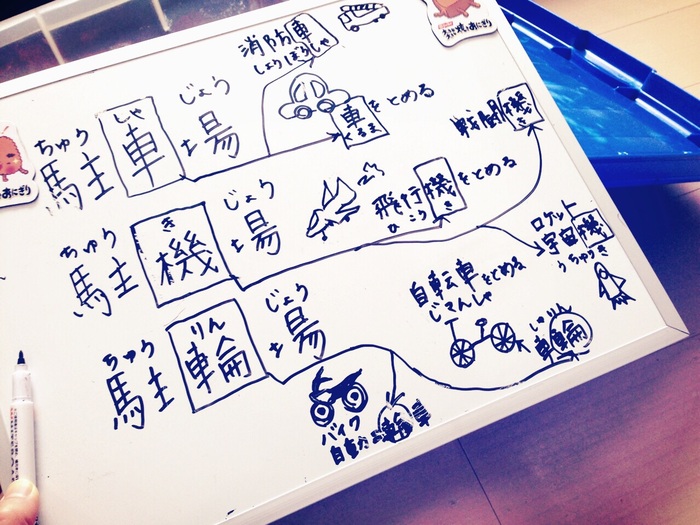 消防車
しょうぼうしゃ
ちゅう しゃ じょう
駐車場
車をとめる
くるま
戦闘機
き
ちゅう き じょう
駐機場
飛行機をとめる
ひこうき
ロケット
宇宙機
うちゅうき
ちゅう りん じょう
駐輪場
自転車をとめる
じてんしゃ
しゃりん
車輪
バイク
おにぎり
おにぎり